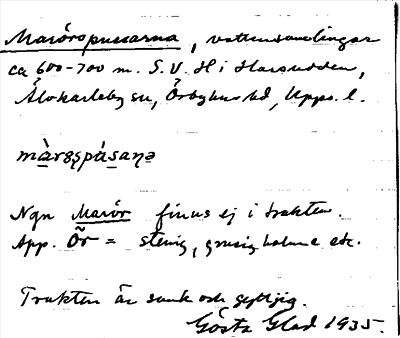 Marörspussarna, vattensamlingar
ca 600-700 m. S.V. H i Harsudden,
Älvkarleby sn, Örbyhus hd, Upps. l.
màrǫspùsaṇǝ
Ngn Marör finns ej i trakten.
App. Ör = stenig, grusig holme etc.
Trakten är sank och gyttjig.
Gösta Glad 1935.